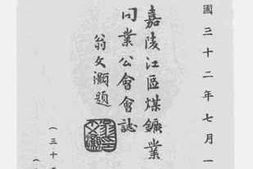 國三十二年七月一
嘉陵江區煤鑛業
同業公會會誌
翁文灝題